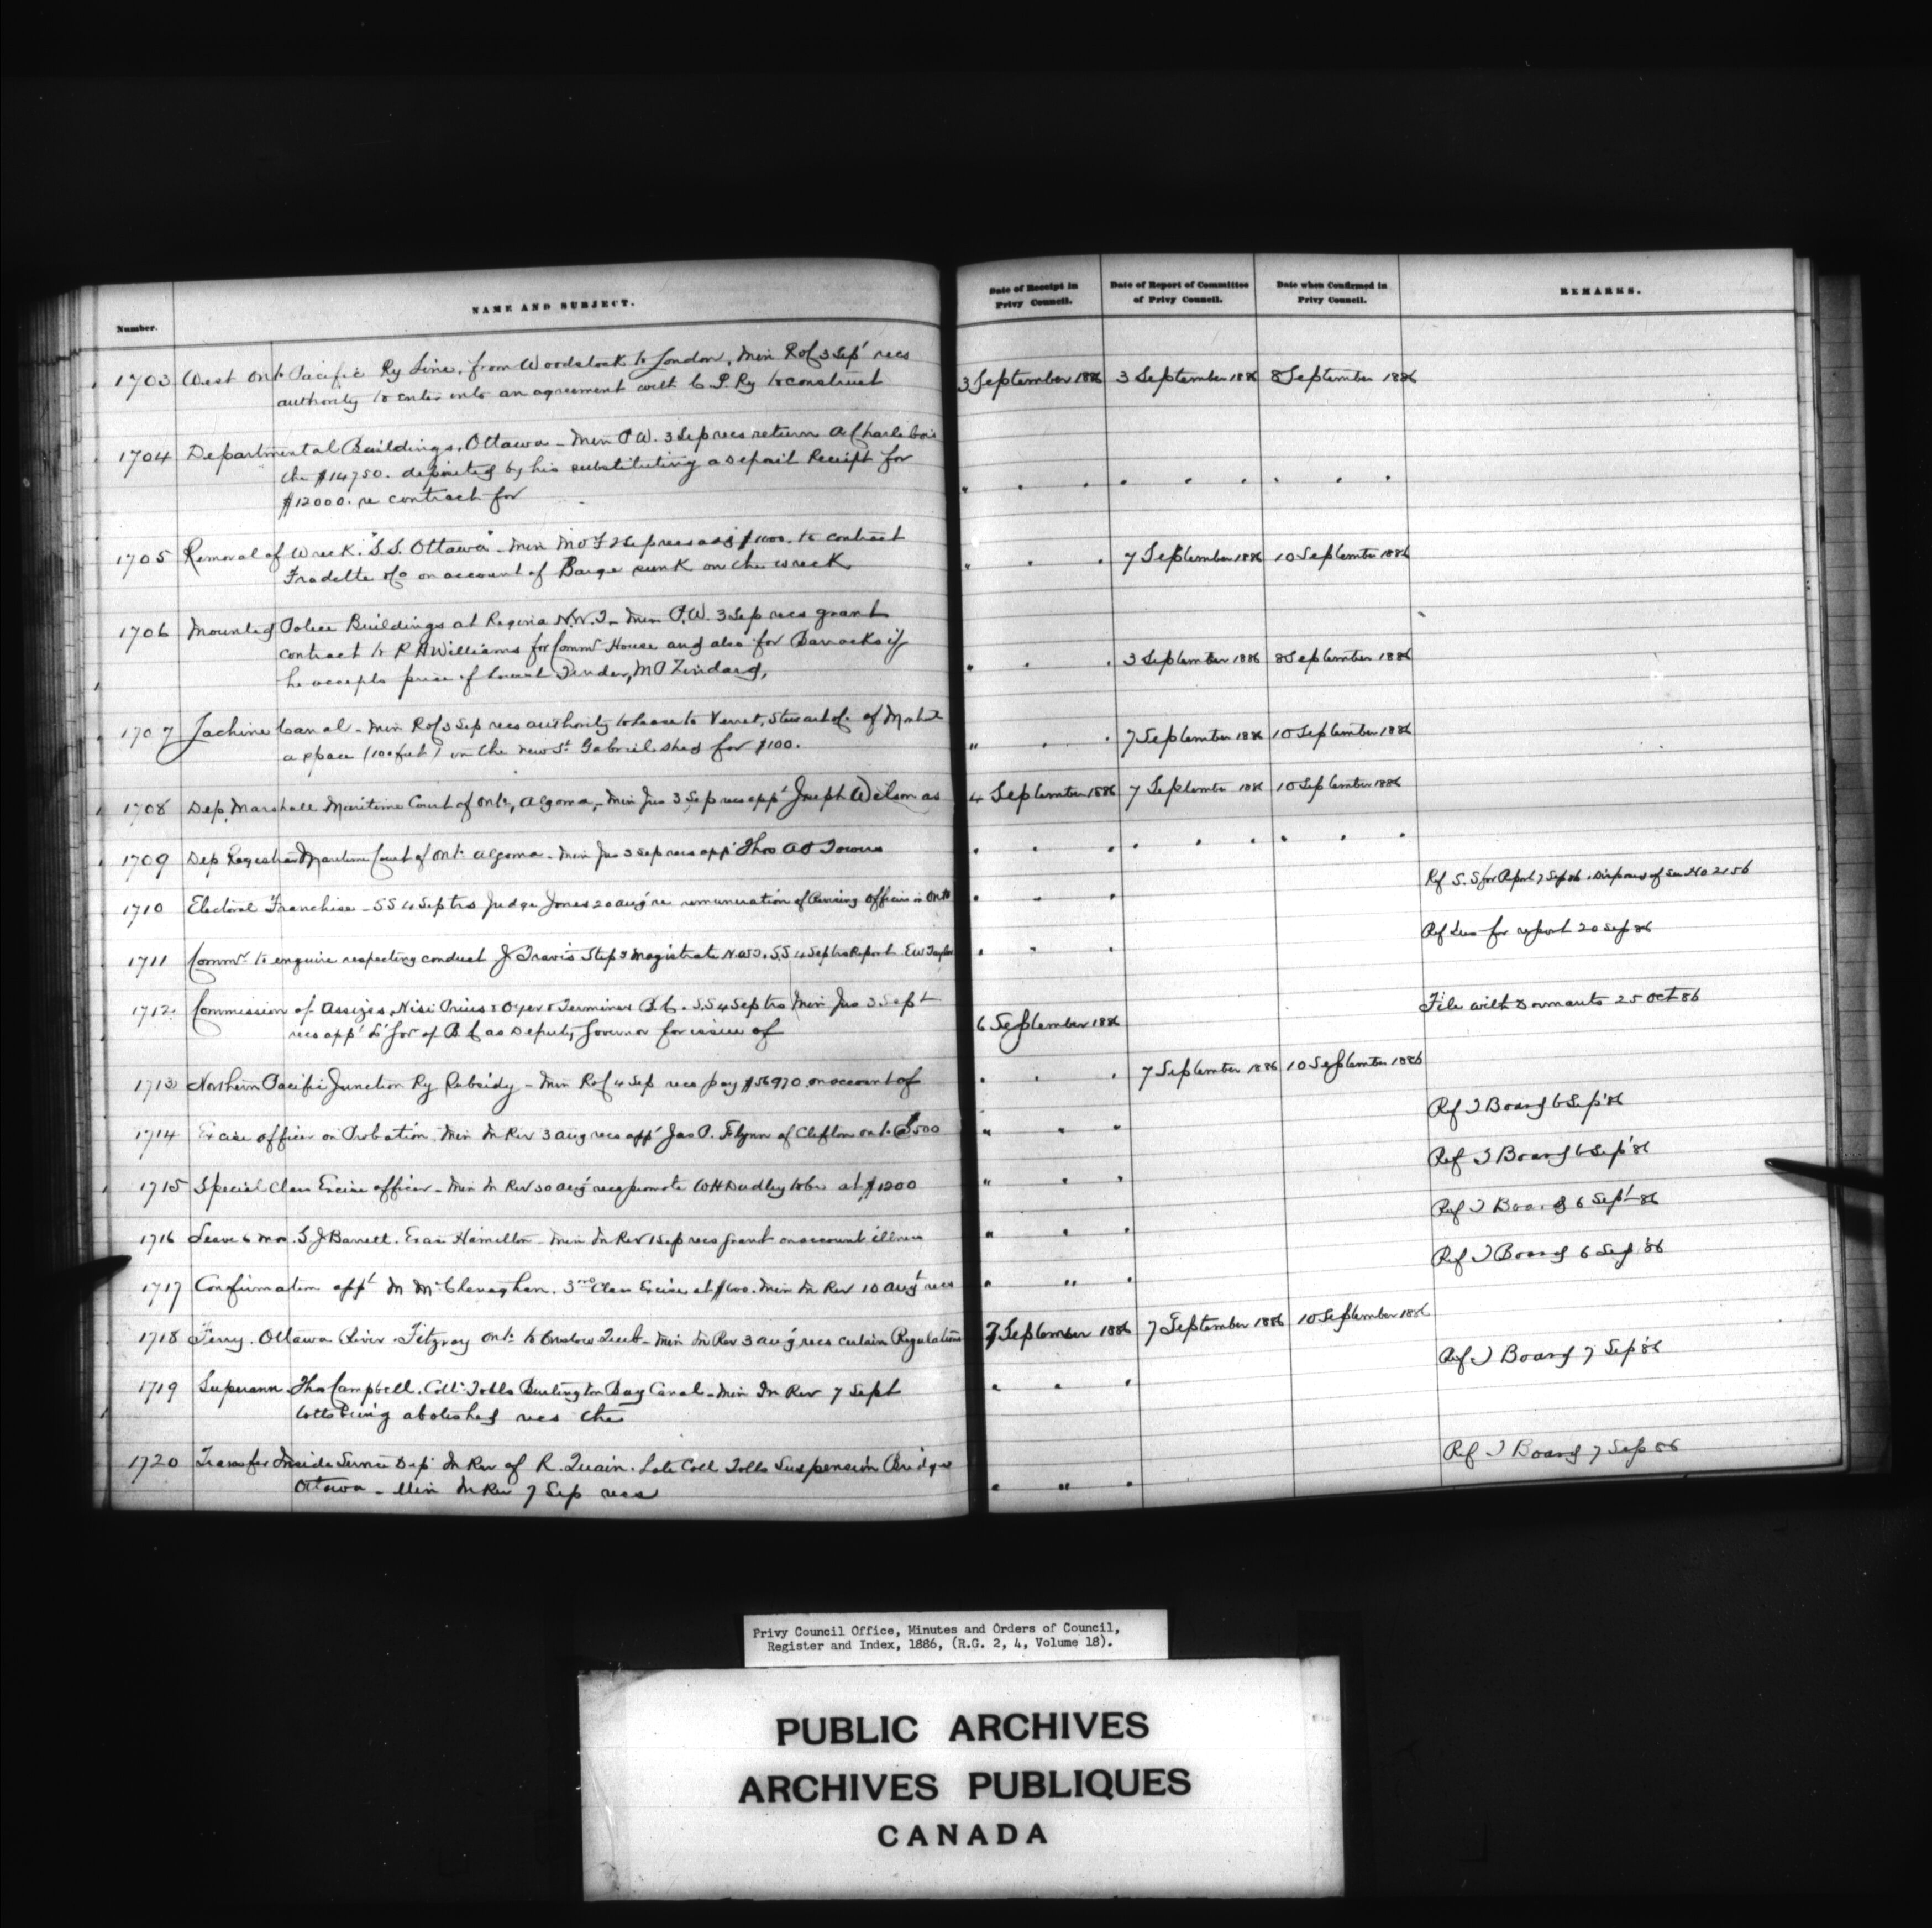 Number.
NAME AND SUBJECT.
Date of Receipt in
Privy Council.
Date of Report of Committee
of Privy Council.
Date when Confirmed in
Privy Council.
REMARKS.
1703 West Ont. Pacific Ry Line, from Woodstock to London, Min R of 3 Sep' recs
authority to enter into an agreement with C. P. Ry to construct
3 September 1886 3 September 1886 8 September 1886
1704 Departmental Buildings, Ottawa - Min P.W. 3 Sep recs return A Charlebois
the $14750. deposited by his substituting a Deposit Receipt for
$12000. re contract for
" " " " " " " " "
1705 Removal of Wreck. "S.S. Ottawa" - Min M & F 2 Sep recs add $1000. to contract
Fradette &c on account of Barge sunk on the wreck
" " " 7 September 1886 10 September 1886
1706 Mounted Police Buildings at Regina N.W.T. - Min P.W. 3 Sep recs grant
contract to R A Williams for Commr House and also for Barracks if
he accepts price of lowest Tender, M P
" " " 3 September 1886 8 September 1886
1707 Lachine Canal - Min R of 3 Sep recs authority to lease to Verret, Stewart & Co. of
a space (100 feet) in the new St. Gabriel shed for $100.
" " " 7 September 1886 10 September 1886
1708 Dep. Marshall Maritime Court of Ont., Algoma, - Min Jus 3 Sep recs app' Joseph Wilson as
4 September 1886 7 September 1886 10 September 1886
1709 Dep Registrar Maritime Court of Ont. Algoma - Min Jus 3 Sep recs app' Thos A Towers
" " " " " " " " "
1710 Electoral Franchise - SS 4 Sept trs Judge Jones 20 Aug re remuneration of Revising Officers in Onto
" " " Ref S.S for Report 7 Sep 86. Disposed of See No 2156
1711 Commr. to enquire respecting conduct J Travis Stipy Magistrate N.W.T. S.S 4 Sep trs Report E W Taylor
" " " Ref Jus for report 20 Sep 86
1712 Commission of Assizes, Nisi Prius & Oyer & Terminer B.C. - S.S 4 Sep trs Min Jus 3 Sept
recs app' Lt Gov of B C as Deputy Governor for issue of
6 September 1886 File with Dormants 25 Oct 86
1713 Northern Pacific Junction Ry Subsidy - Min R of 4 Sep recs pay $56970 on account of
" " " 7 September 1886 10 September 1886
1714 Excise officer on Probation Min In Rev 3 Aug recs app' Jas P. Flynn of Clifton Ont. @ $500
" " " Ref T Board 6 Sep' 86
1715 Special Class Excise officer - Min In Rev 30 Aug' recs promote W H Dudley to be at $1200
" " " Ref T Board 6 Sep' 86
1716 Leave 6 mos. G. J Barrett. Excise Hamilton - Min In Rev 1 Sep recs grant on account illness
" " " Ref T Board 6 Sept 86
1717 Confirmation appt M McClenaghan. 3rd Class Excise at $600. Min In Rev 10 Augt recs
" " " Ref T Board 6 Sep '86
1718 Ferry. Ottawa River. Fitzroy Ont. to Onslow Queb - Min In Rev 3 Aug recs certain Regulations
7 September 1886 7 September 1886 10 September 1886
1719 Superann. Thos Campbell. Coll. Tolls Burlington Bay Canal - Min In Rev 7 Sept
tolls being abolished recs the
" " " Ref T Board 7 Sep '86
1720 Transfer Inside Service Dep' In Rev of R. Quain. Late Coll Tolls Suspension Bridge
Ottawa - Min In Rev 7 Sep recs
" " " Ref T Board 7 Sep 86
Privy Council Office, Minutes and Orders of Council,
Register and Index, 1886, (R.G. 2, 4, Volume 18).
PUBLIC ARCHIVES
ARCHIVES PUBLIQUES
CANADA